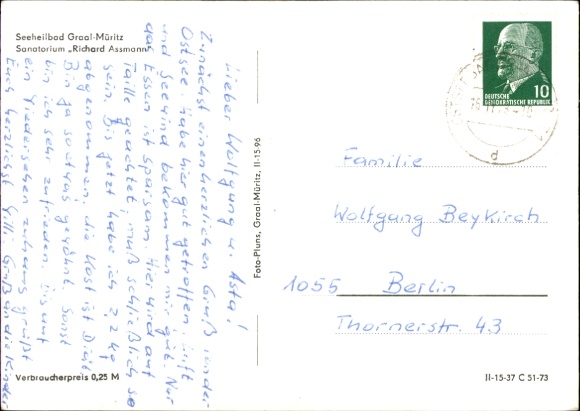 Seeheilbad Graal-Müritz
Sanatorium „Richard Assmann"
Lieber Wolfgang u. Asta!
Zunächst einen herzlichen Gruß von der
Ostsee. habe hier gut getroffen, Luft
und Seewind bekommen mir gut. Nur
das Essen ist sparsam. Hier wird auf
Taille geachtet, muß schließlich so
sein. Bis jetzt habe ich 2 kg
abgenommen, die Kost ist Diät.
Bin ja so etwas gewöhnt. Sonst
bin ich sehr zufrieden. Bis auf
ein Wiedersehen zuhause grüßt
Euch herzlichst Willi. Gruß an die Kinder
Verbraucherpreis 0,25 M
Foto-Pluns, Graal-Müritz, II-15-96
10
DEUTSCHE
DEMOKRATISCHE REPUBLIK
d
Familie
Wolfgang Beykirch
1055 Berlin
Thornerstr. 43
II-15-37 C 51-73